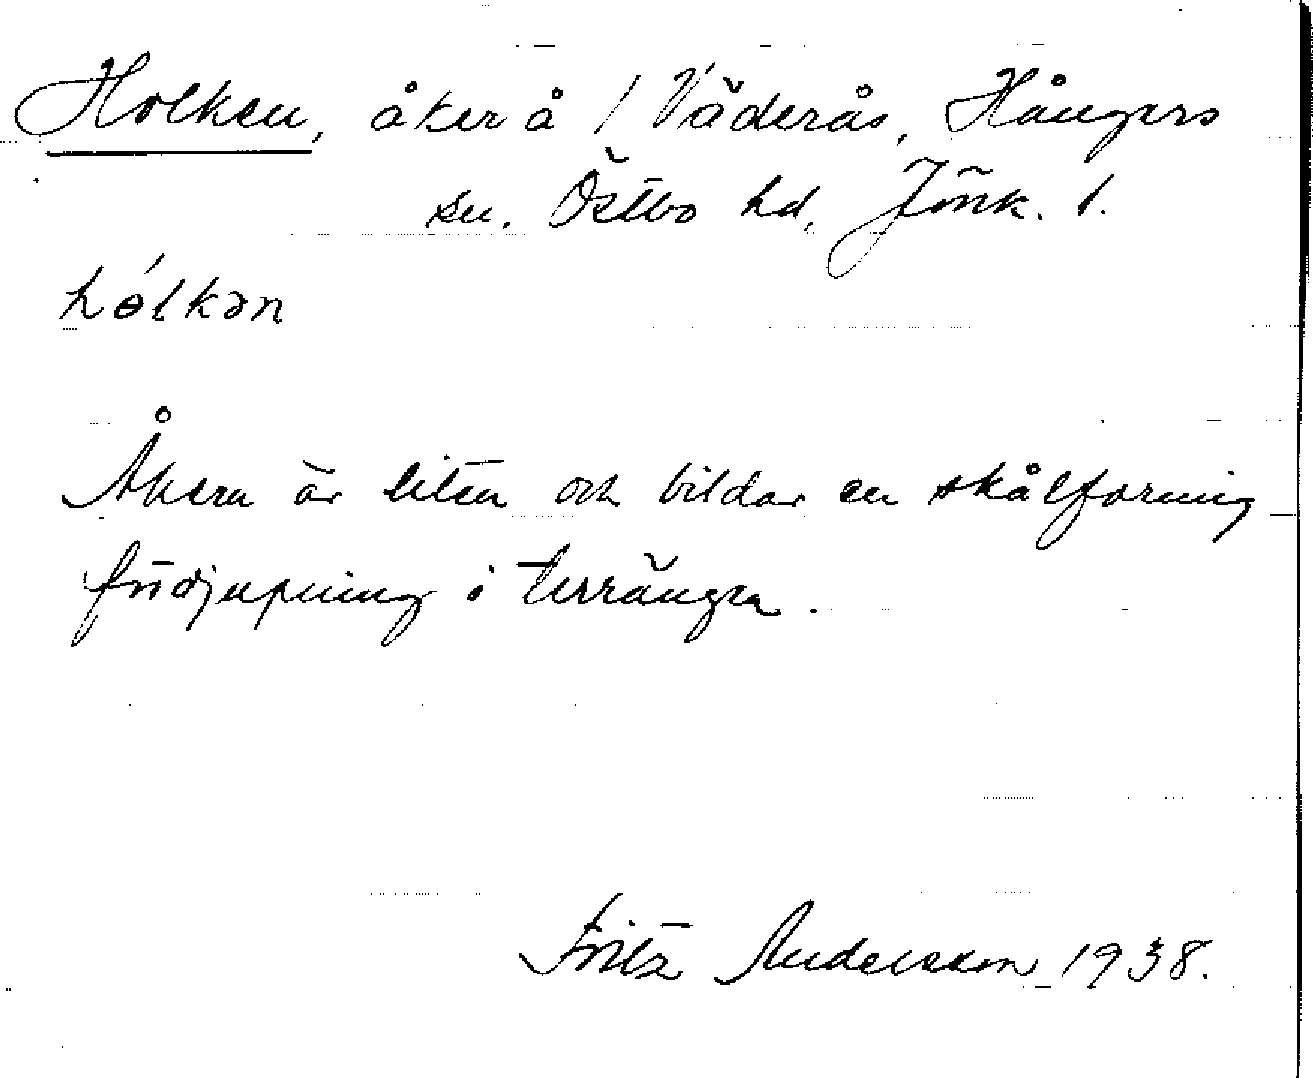 Holken, åker å / Väderås, Hångers
sn. Östbo hd, Jönk. l.
hɵ́lkən
Åkern är liten och bildar en skålformig
fördjupning i terrängen.
Fritz Andersson 1938.